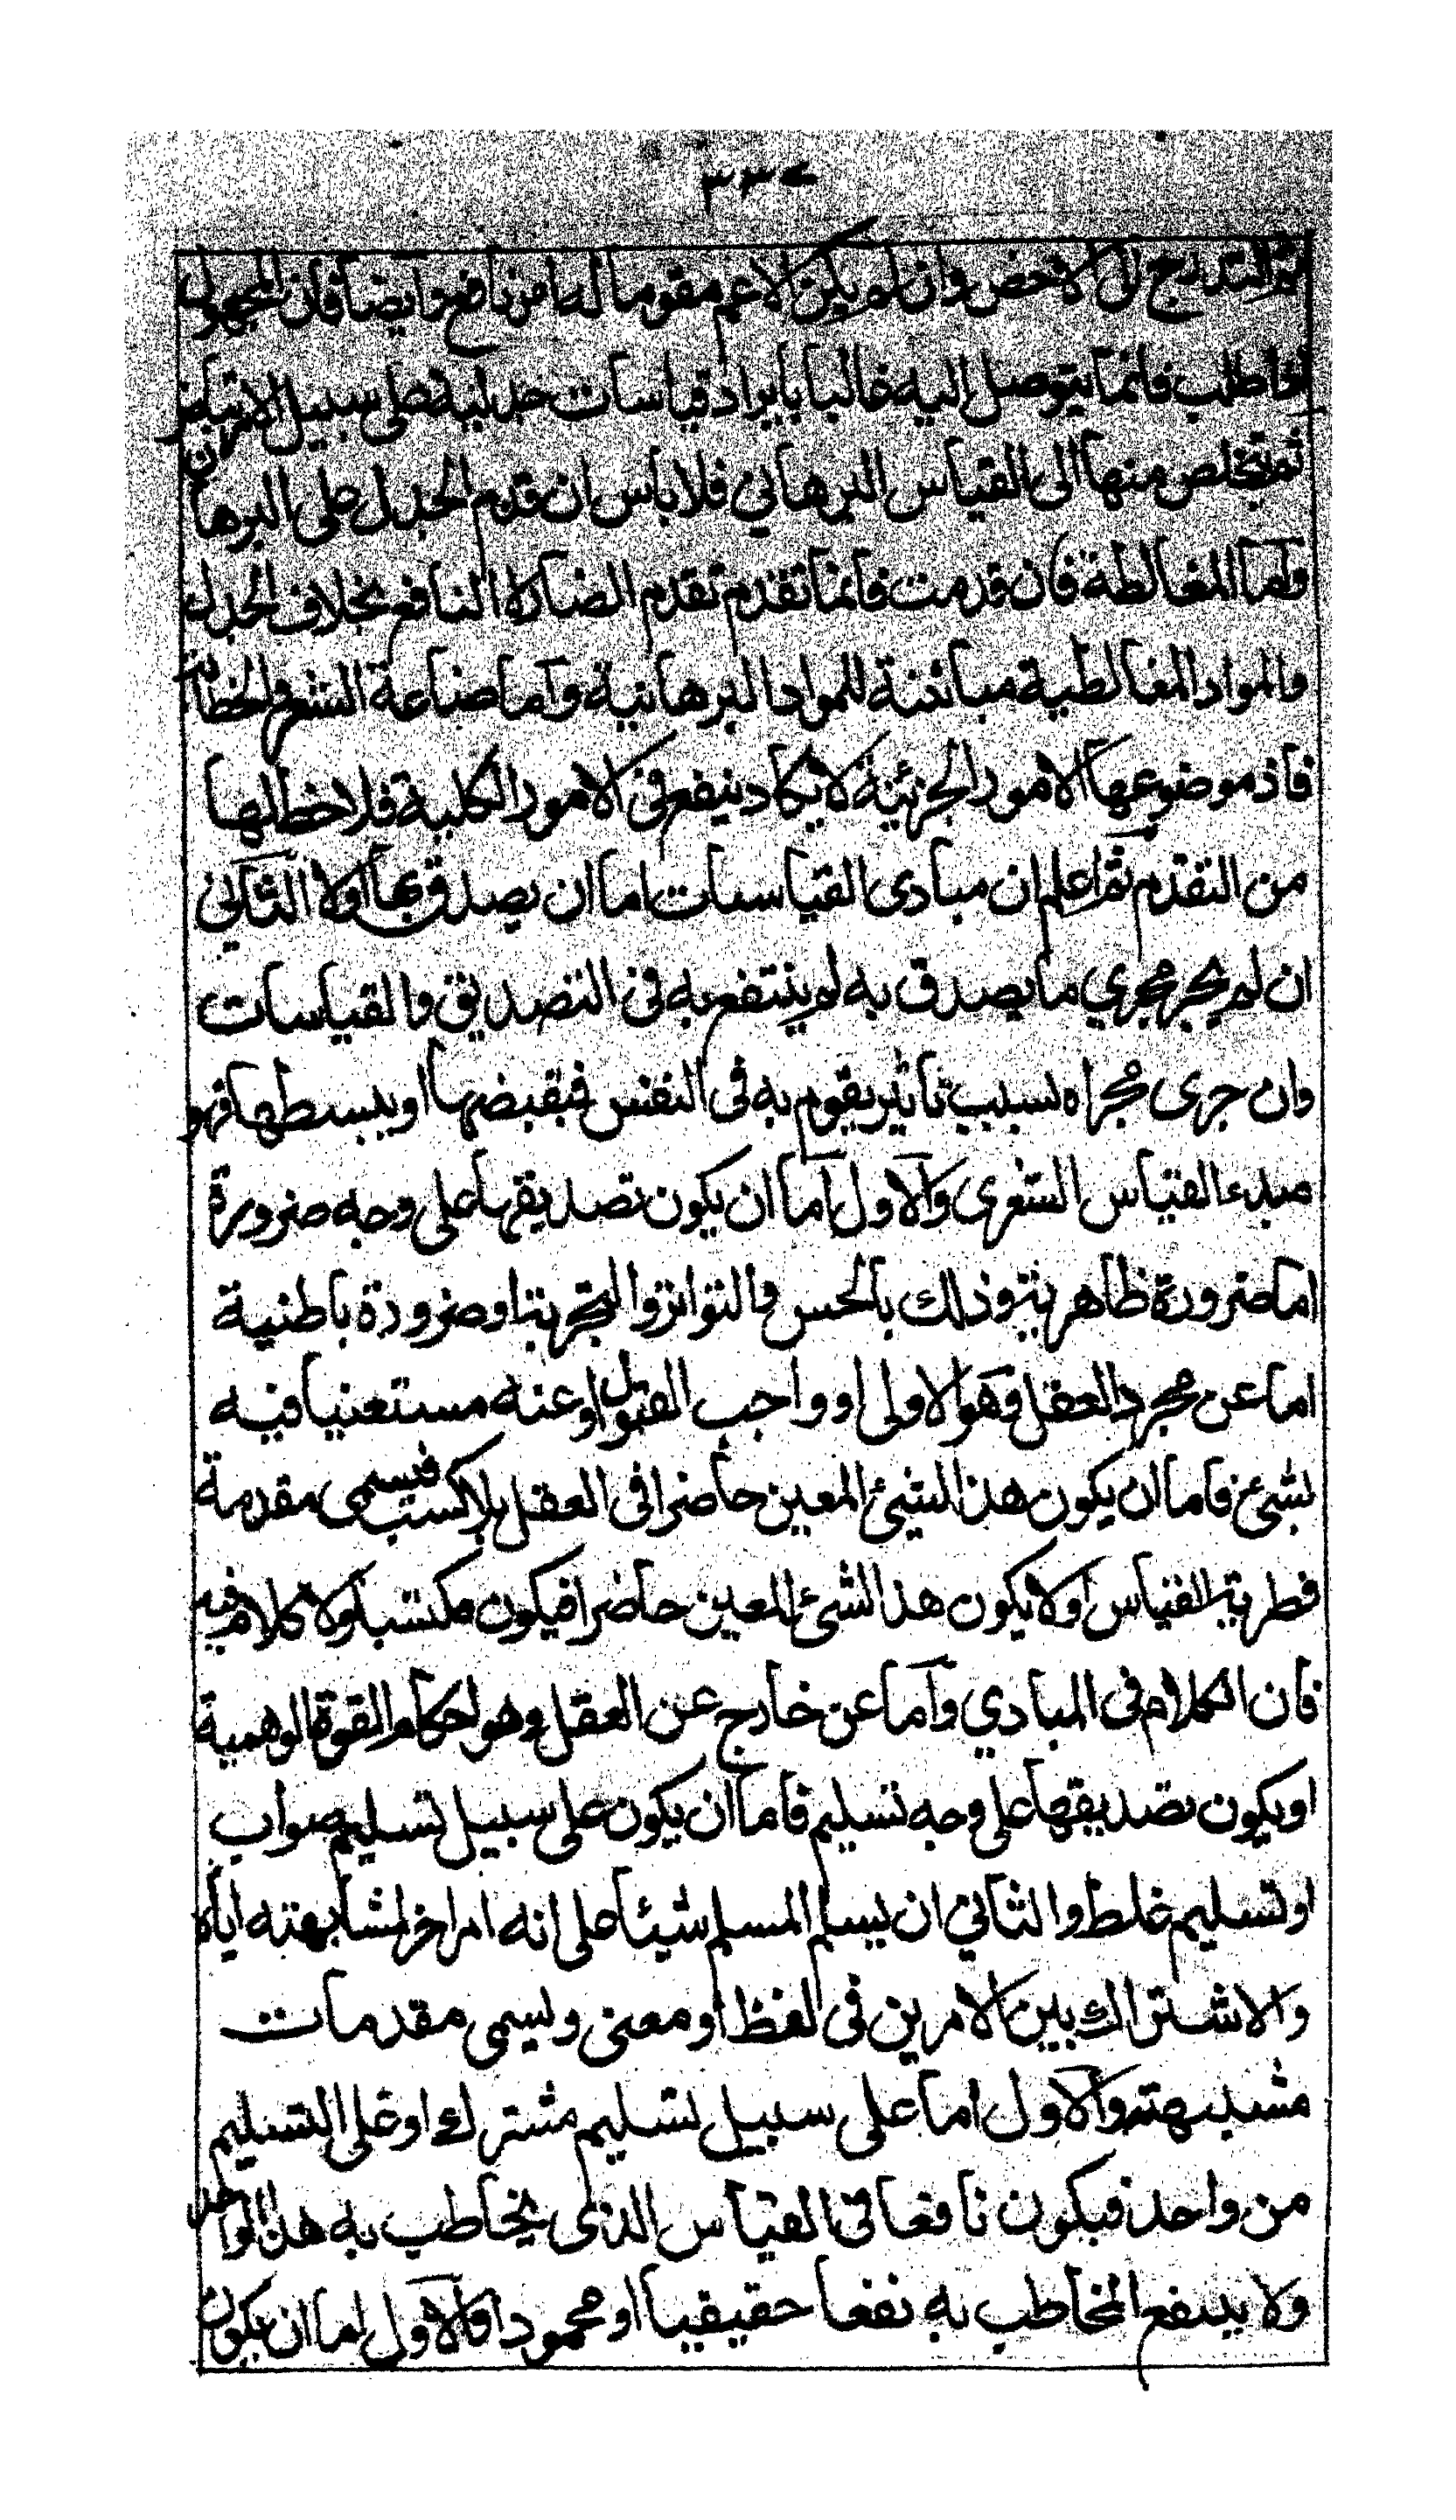 ٣٣٢
ثم التدرج الى الاخص وان لم يكن الاعم مقوما له امر نافع وايضا فان المجهول
اذا طلب فانما يتوصل اليه غالبا بايراد قياسات جدلية على سبيل الارتياض
ثم يتخلص منها الى القياس البرهاني فلا باس ان قدم الجدل على البرهان
واما المغالطة فان قدمت فانما تقدم تقدم الضار لا النافع بخلاف الجدل
والمواد المغالطية مباينة للمواد البرهانية واما صناعة الشعر والخطابة
فاذ موضوعها الامور الجزئية لا يكاد ينفع في الامور الكلية فلا حظ لها
من التقدم ثم اعلم ان مبادى القياسات اما ان يصدق بها اولا الثاني
ان لم يجر مجري ما يصدق به لم ينتفع به في التصديق والقياسات
وان جرى مجراه بسبب تاثير يقوم به في النفس فيقبضها او يبسطها فهو
مبدء القياس الشعرى والاول اما ان يكون تصديقها على وجه ضرورة
اما ضرورة ظاهرية وذلك بالحس والتواتر والتجربة او ضرورة باطنية
اما عن مجرد العقل وهو الاولى او واجب القبول او عنه مستعنيا فيه
بشئ فاما ان يكون هذا الشئ المعين حاضرا في العقل بلا كسب فيسمى مقدمة
فطرية القياس اولا يكون هذا الشئ المعين حاضرا فيكون مكتسبا ولا كلام فيه
فان الكلام في المبادي واما عن خارج عن العقل وهو احكام القوة الوهمية
او يكون تصديقها على وجه تسليم فاما ان يكون على سبيل تسليم صواب
او تسليم غلط والثاني ان يسلم المسلم شيئا على انه امر اخر لمشابهته اياه
والاشتراك بين الامرين في لفظ او معنى ويسمى مقدمات
مشبهة والاول اما على سبيل تسليم مشترك او على التسليم
من واحد فيكون نافعا في القياس الذى يخاطب به هذا الواحد
ولا ينتفع المخاطب به نفعا حقيقيا او محمودا والاول اما ان يكون